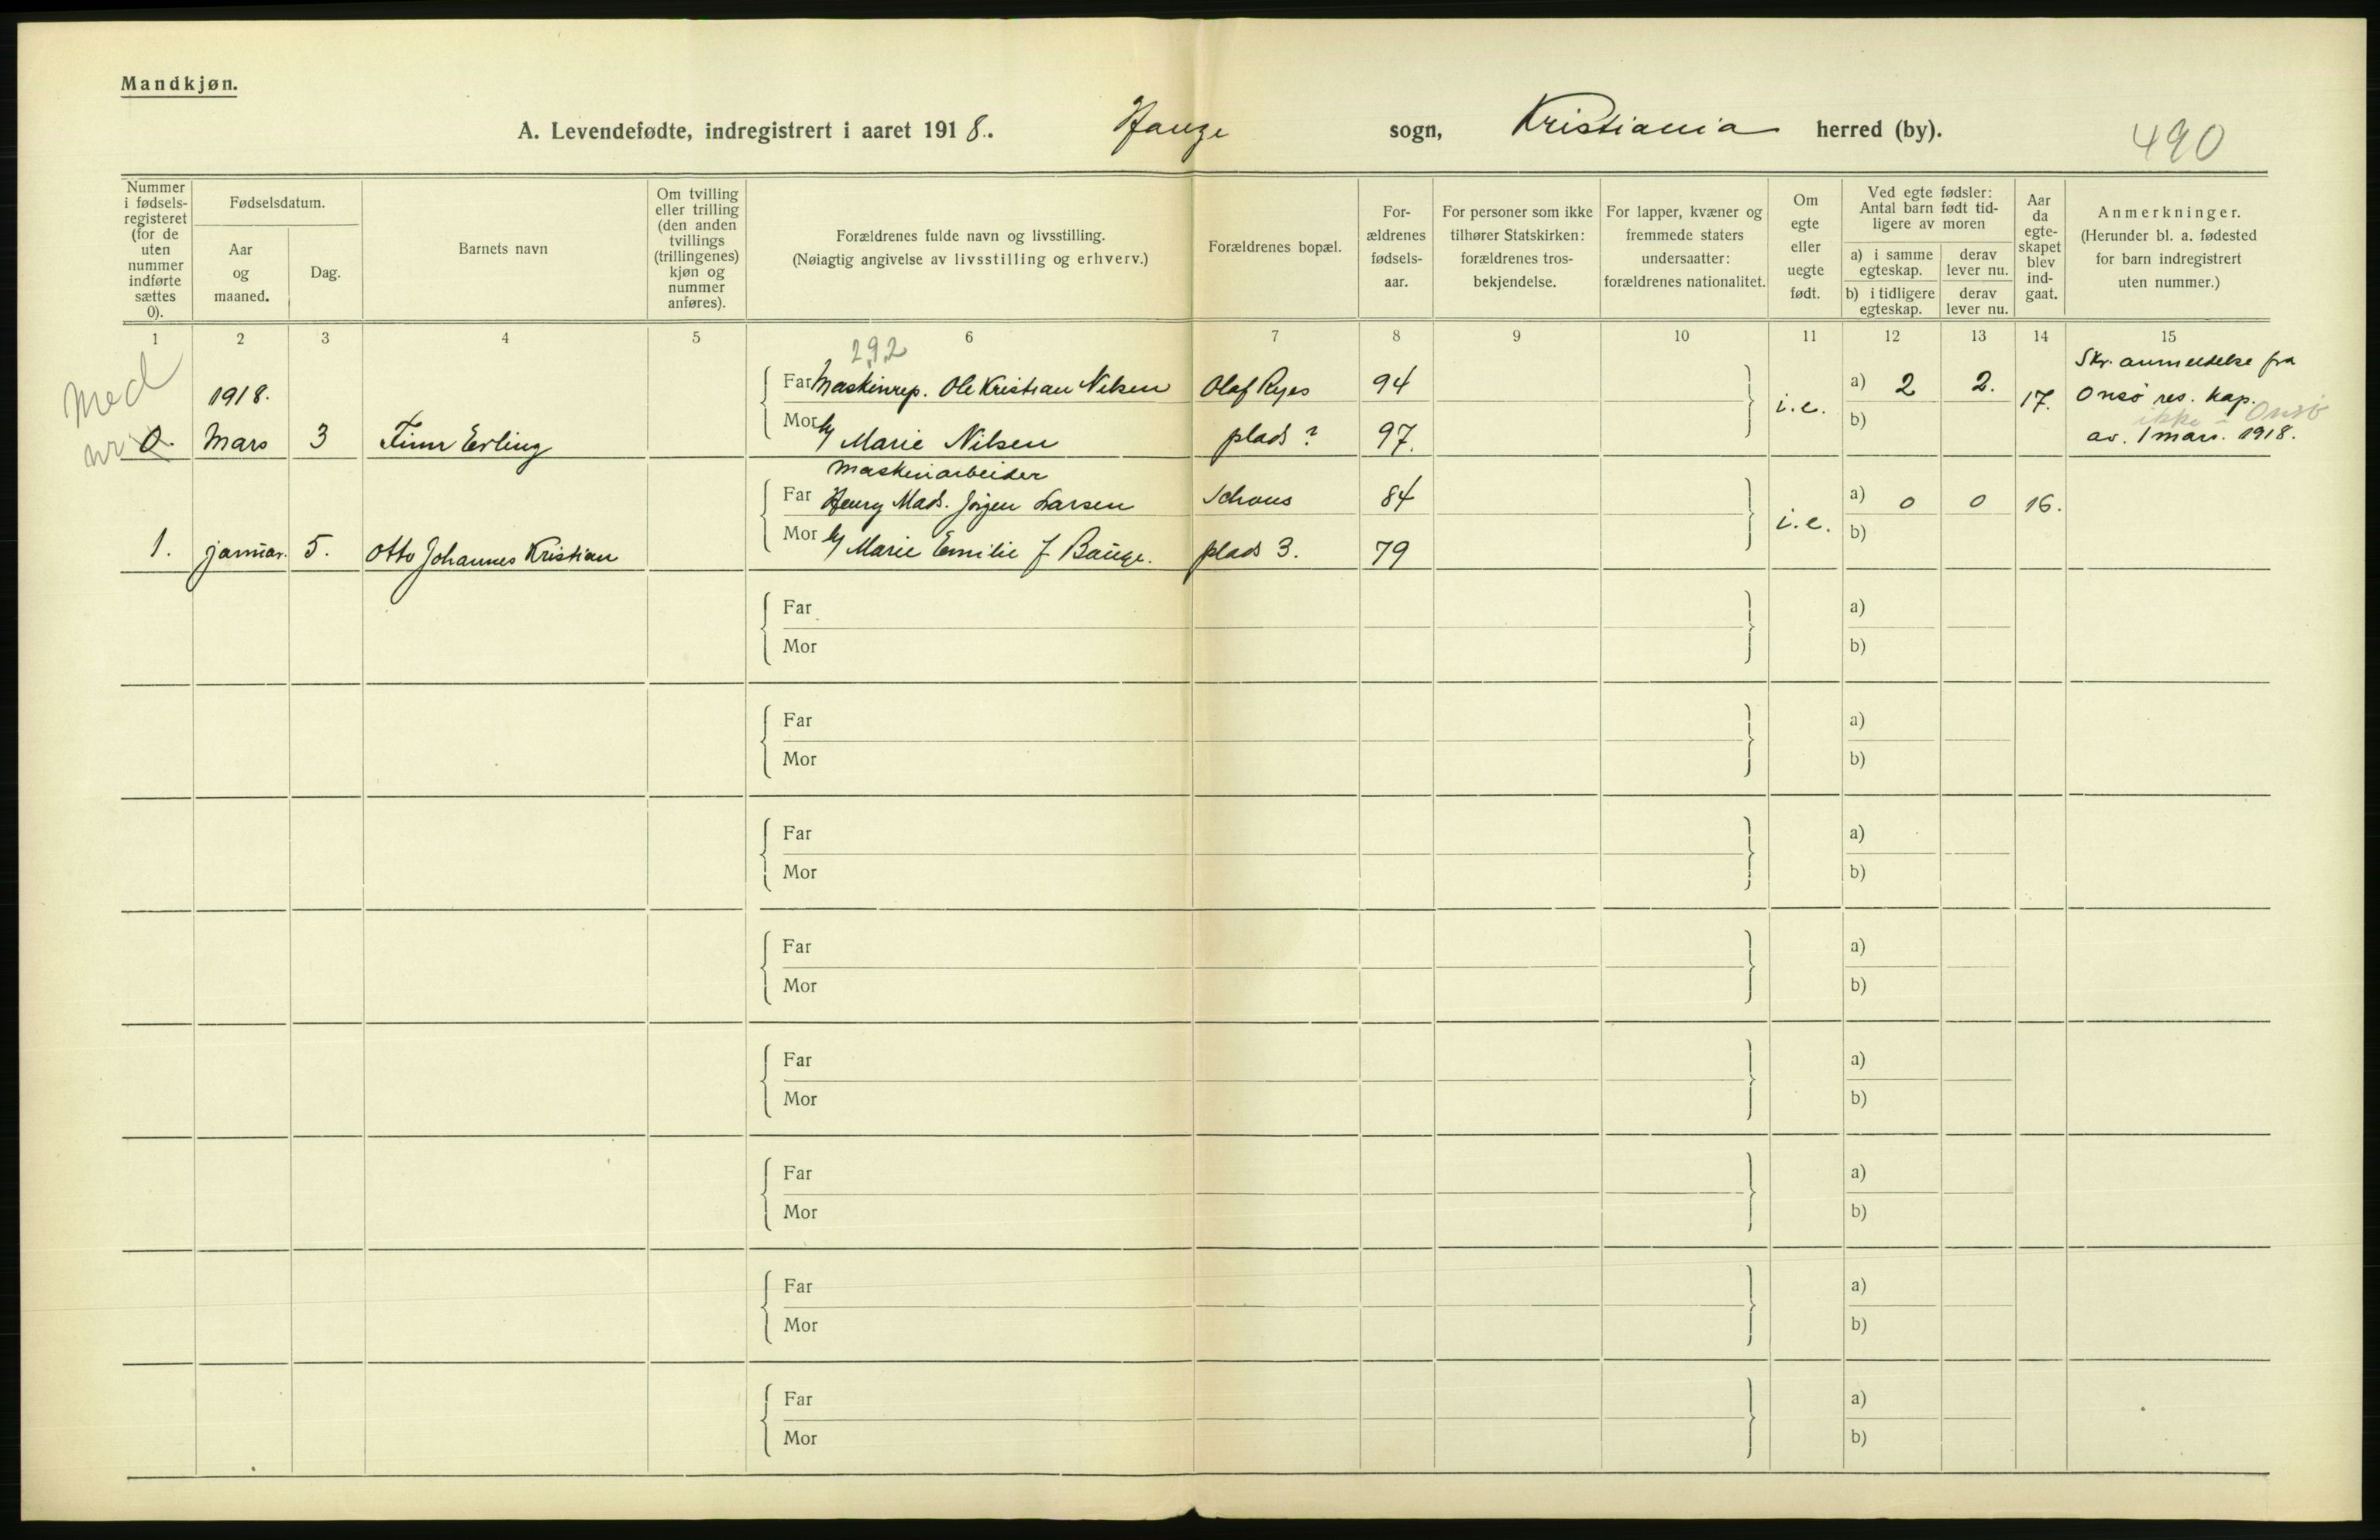 Mandkjøn.
A. Levendefødte, indregistrert i aaret 1918. Hauge sogn, Kristiania herred (by).
490
Nummer i fødsels-registeret (for de uten nummer indførte sættes 0).
Fødselsdatum.
Aar og maaned.
Dag.
Barnets navn
Om tvilling eller trilling (den anden tvillings (trillingenes) kjøn og nummer anføres).
Forældrenes fulde navn og livsstilling.
(Nøiagtig angivelse av livsstilling og erhverv.)
Forældrenes bopæl.
For-ældrenes fødsels-aar.
For personer som ikke tilhører Statskirken: forældrenes tros-bekjendelse.
For lapper, kvæner og fremmede staters undersaatter: forældrenes nationalitet.
Om egte eller uegte født.
Ved egte fødsler: Antal barn født tid-ligere av moren
a) i samme egteskap.
derav lever nu.
b) i tidligere egteskap.
derav lever nu.
Aar da egte-skapet blev ind-gaat.
Anmerkninger.
(Herunder bl. a. fødested for barn indregistrert uten nummer.)
1 2 3 4 5 6 7 8 9 10 11 12 13 14 15
Med nr
292
0. 1918. Mars 3 Finn Erling
Far Maskinrep. Ole Kristian Nilsen Olaf Ryes 94
Mor Marie Nilsen plads ? 97.
i.e. a) 2 2. 17.
b)
Skr. anmeldelse fra
Onsø res. kap.
ikke i Onsø
av. 1 mars. 1918.
1. januar. 5. Otto Johannes Kristian
Maskinarbeider
Far Henry Mads. Jörgen Larsen Schous 84
Mor Marie Emilie f. Bauge. plads 3. 79
i.e. a) 0 0 16.
b)
Far a)
Mor b)
Far a)
Mor b)
Far a)
Mor b)
Far a)
Mor b)
Far a)
Mor b)
Far a)
Mor b)
Far a)
Mor b)
Far a)
Mor b)